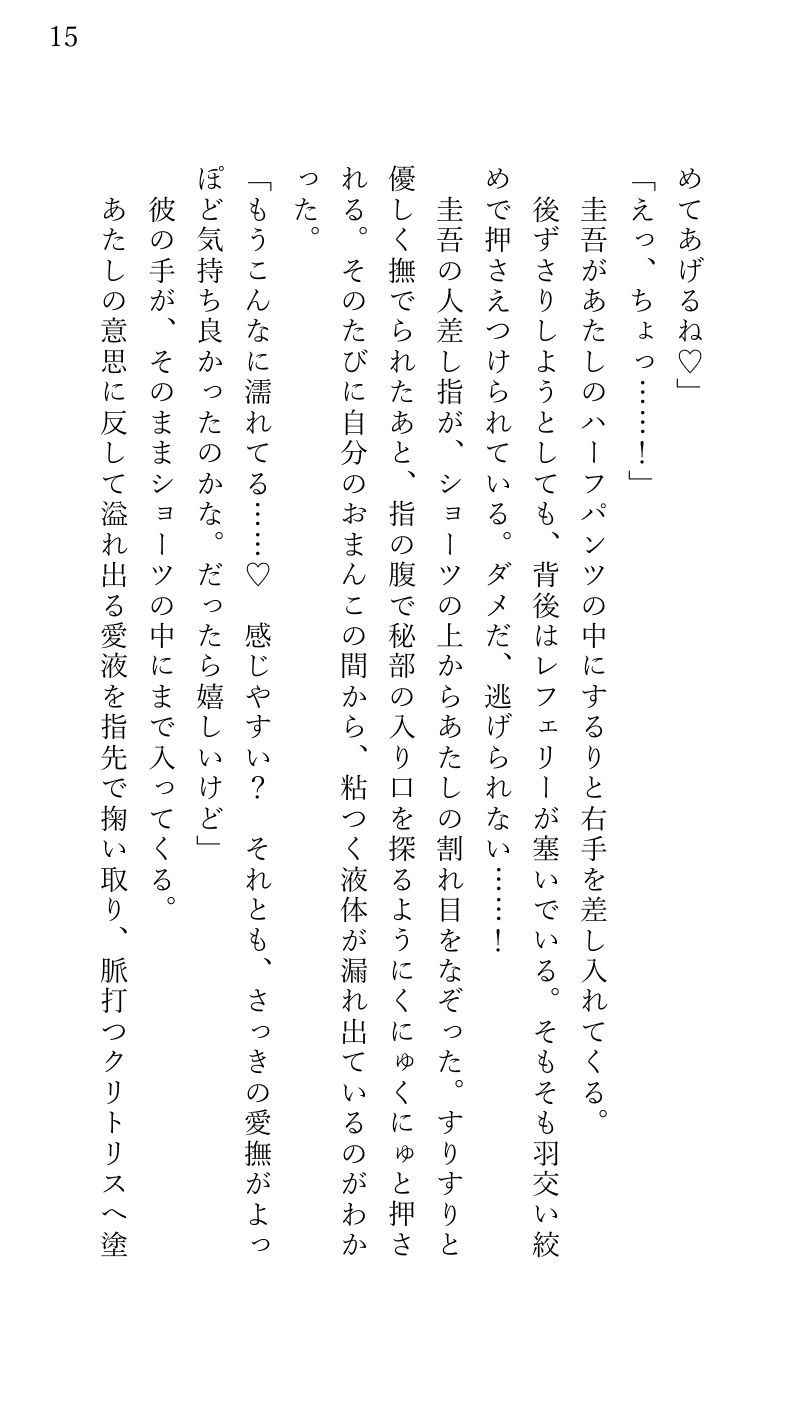 15
めてあげるね♡」
「えっ、ちょっ……！」
　圭吾があたしのハーフパンツの中にするりと右手を差し入れてくる。
　後ずさりしようとしても、背後はレフェリーが塞いでいる。そもそも羽交い絞
めで押さえつけられている。ダメだ、逃げられない……！
　圭吾の人差し指が、ショーツの上からあたしの割れ目をなぞった。すりすりと
優しく撫でられたあと、指の腹で秘部の入り口を探るようにくにゅくにゅと押さ
れる。そのたびに自分のおまんこの間から、粘つく液体が漏れ出ているのがわか
った。
「もうこんなに濡れてる……♡　感じやすい？　それとも、さっきの愛撫がよっ
ぽど気持ち良かったのかな。だったら嬉しいけど」
　彼の手が、そのままショーツの中にまで入ってくる。
　あたしの意思に反して溢れ出る愛液を指先で掬い取り、脈打つクリトリスへ塗